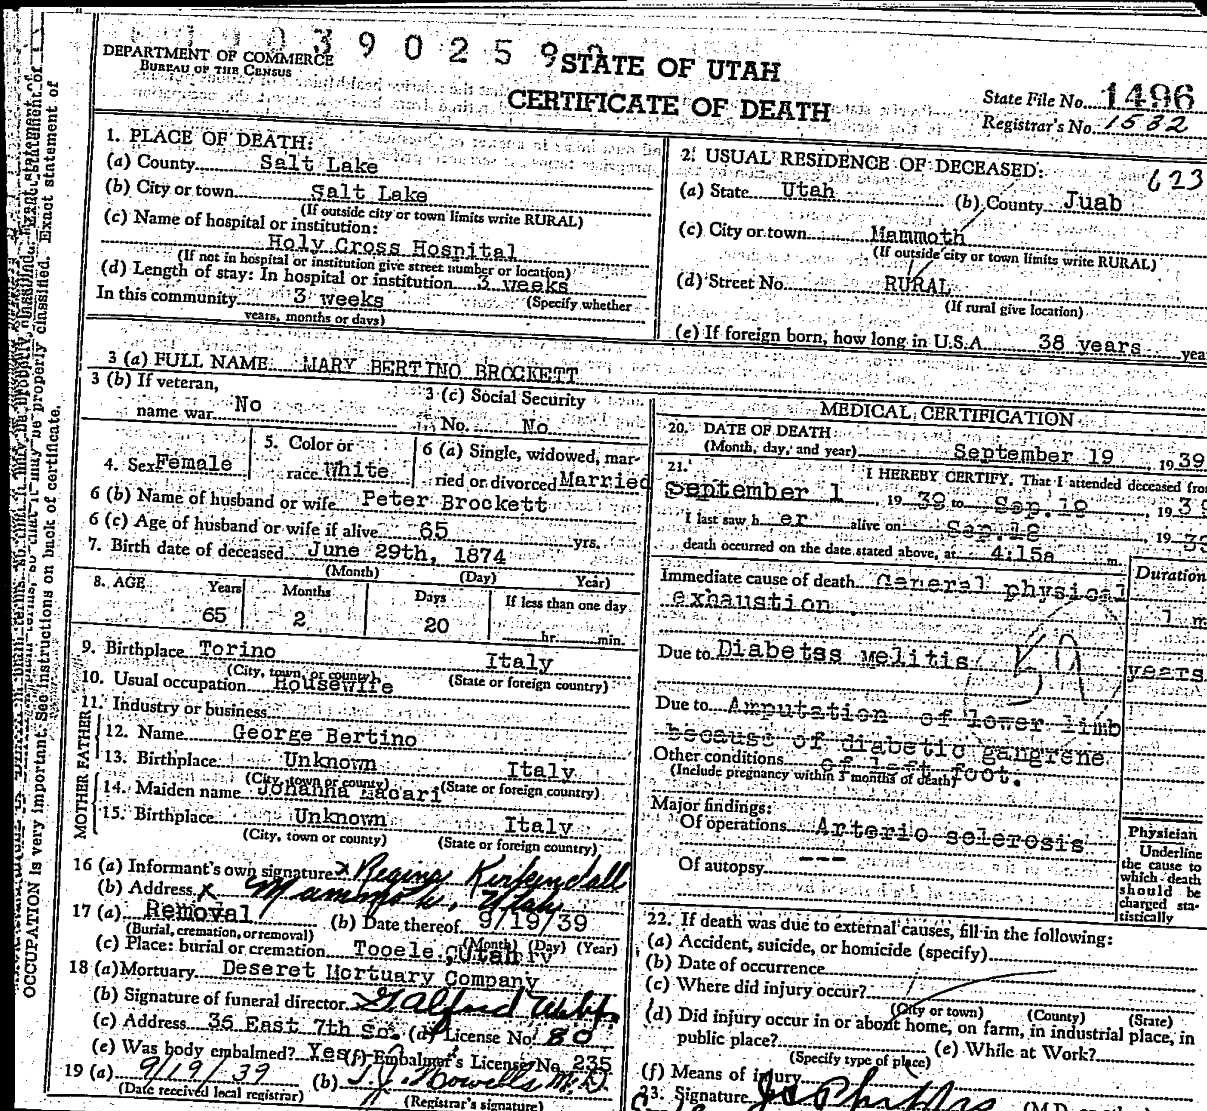 3 9 0 2 5 9
DEPARTMENT OF COMMERCE
BUREAU OF THE CENSUS
STATE OF UTAH
CERTIFICATE OF DEATH
State File No. 1496
Registrar's No. 1532
1. PLACE OF DEATH:
(a) County Salt Lake
(b) City or town Salt Lake
(If outside city or town limits write RURAL)
(c) Name of hospital or institution:
Holy Cross Hospital
(If not in hospital or institution give street number or location)
(d) Length of stay: In hospital or institution 3 weeks
(Specify whether
In this community 3 weeks
years, months or days)
2. USUAL RESIDENCE OF DECEASED:
623
(a) State Utah (b) County Juab
(c) City or town Mammoth
(If outside city or town limits write RURAL)
(d) Street No. RURAL
(If rural give location)
(e) If foreign born, how long in U.S.A. 38 years
3 (a) FULL NAME MARY BERTINO BROCKETT
3 (b) If veteran,
name war No
3 (c) Social Security
No. No
4. Sex Female
5. Color or
race White
6 (a) Single, widowed, mar-
ried or divorced Married
6 (b) Name of husband or wife Peter Brockett
6 (c) Age of husband or wife if alive 65 yrs.
7. Birth date of deceased June 29th, 1874
(Month) (Day) Year)
8. AGE Years Months Days If less than one day
65 2 20 hr. min.
9. Birthplace Torino Italy
(City, town, or county) (State or foreign country)
10. Usual occupation Housewife
11. Industry or business
FATHER
12. Name George Bertino
13. Birthplace Unknown Italy
(City, town or county) (State or foreign country)
MOTHER
14. Maiden name Johanna Macari
15. Birthplace Unknown Italy
(City, town or county) (State or foreign country)
16 (a) Informant's own signature x Regina Kirkendall
(b) Address x Mammoth, Utah
17 (a) Removal (b) Date thereof 9/19/39
(Burial, cremation, or removal) (Month) (Day) (Year)
(c) Place: burial or cremation Tooele, Utah
18 (a) Mortuary Deseret Mortuary Company
(b) Signature of funeral director
(c) Address 36 East 7th So. (d) License No. 80
(e) Was body embalmed? Yes (f) Embalmer's License No. 235
19 (a) 9/19/39 (b)
(Date received local registrar) (Registrar's signature)
MEDICAL CERTIFICATION
20. DATE OF DEATH
(Month, day, and year) September 19 1939
21. I HEREBY CERTIFY, That I attended deceased from
September 1 1939 to Sep. 19 193
I last saw h er alive on Sep. 18 1939
death occurred on the date stated above, at 4:15a m.
Duration
Immediate cause of death General physical
exhaustion 1 m
Due to Diabetes melitis years
59
Due to Amputation of lower limb
because of diabetic gangrene
Other conditions of left foot.
(Include pregnancy within 3 months of death)
Major findings:
Of operations Arterio sclerosis
Of autopsy ---
Physician
Underline
the cause to
which death
should be
charged sta-
tistically
22. If death was due to external causes, fill in the following:
(a) Accident, suicide, or homicide (specify)
(b) Date of occurrence
(c) Where did injury occur?
(City or town) (County) (State)
(d) Did injury occur in or about home, on farm, in industrial place, in
public place? (e) While at Work?
(Specify type of place)
(f) Means of injury
23. Signature
OCCUPATION is very important. See instructions on back of certificate.
so that it may be properly classified. Exact statement of